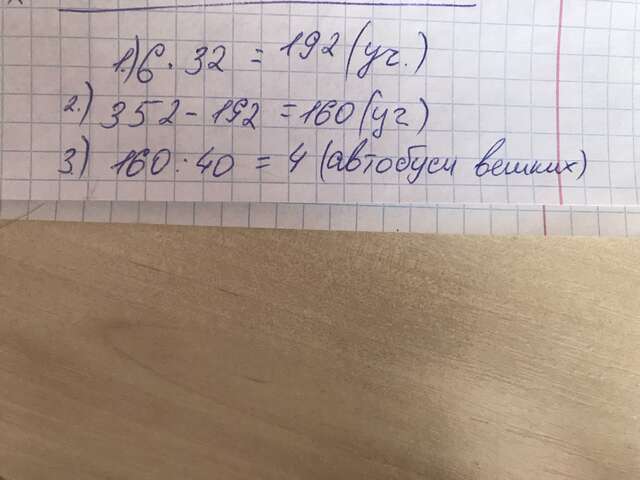 1.) 6 · 32 = 192 (уч.)
2.) 352 - 192 = 160 (уч)
3.) 160 : 40 = 4 (автобуси великих)